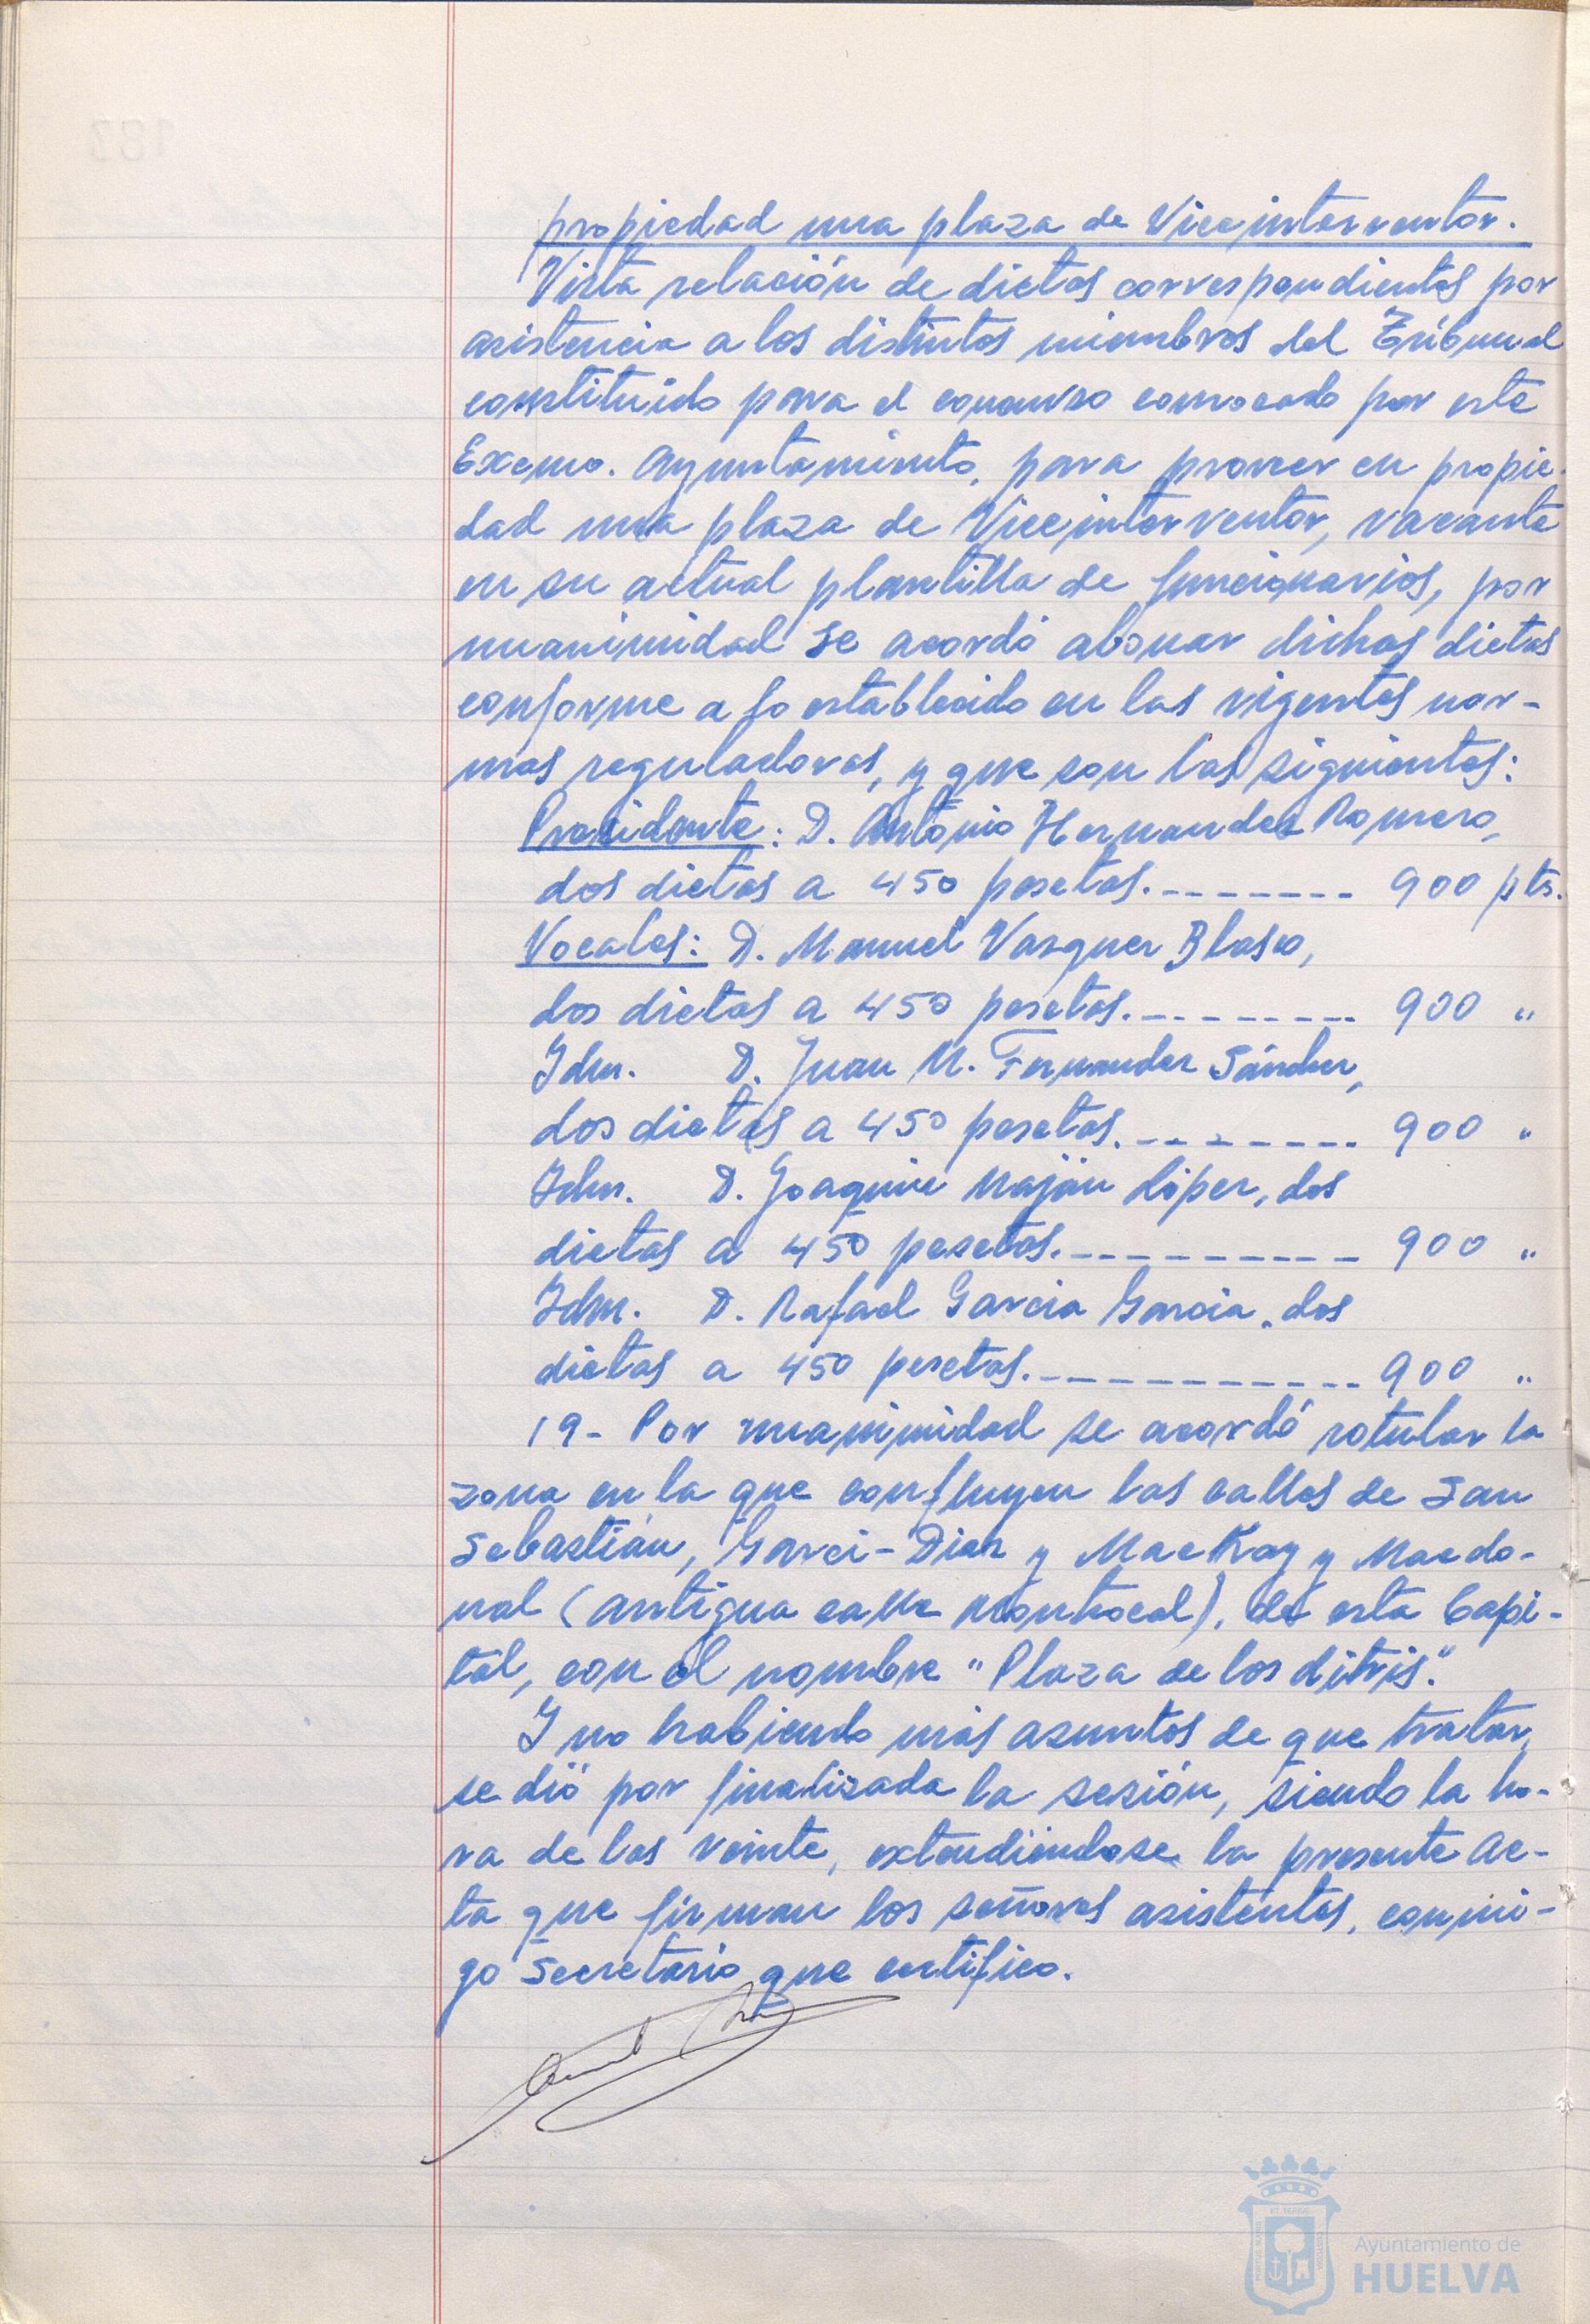 propiedad una plaza de Viceinterventor.
Vista relación de dietas correspondientes por
asistencia a los distintos miembros del Tribunal
constituido para el concurso convocado por este
Excmo. Ayuntamiento, para proveer en propie-
dad una plaza de Viceinterventor, vacante
en su actual plantilla de funcionarios, por
unanimidad se acordó abonar dichas dietas
conforme a lo establecido en las vigentes nor-
mas reguladoras, y que son las siguientes:
Presidente: D. Antonio Hernandez Romero,
dos dietas a 450 pesetas.------- 900 pts.
Vocales: D. Manuel Vazquez Blasco,
dos dietas a 450 pesetas.-------- 900 "
Idm. D. Juan M. Fernandez Sánchez,
dos dietas a 450 pesetas.-------- 900 "
Idm. D. Joaquin Majón López, dos
dietas a 450 pesetas.---------- 900 "
Idm. D. Rafael Garcia Garcia, dos
dietas a 450 pesetas.------------ 900 "
19- Por unanimidad se acordó rotular la
zona en la que confluyen las calles de San
Sebastián, Garci-Diaz y MacKay y Macdo-
nal (antigua calle Montrocal), de esta Capi-
tal, con el nombre "Plaza de los Litris".
Y no habiendo más asuntos de que tratar,
se dió por finalizada la sesión, siendo la ho-
ra de las veinte, extendiéndose la presente Ac-
ta que firman los señores asistentes, conmi-
go Secretario que certifico.
Ayuntamiento de
HUELVA